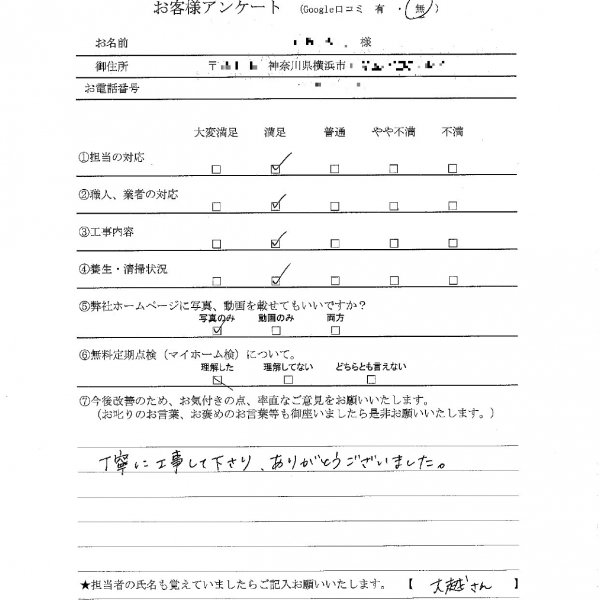 お客様アンケート (Google口コミ 有 ・ 無)
お名前 様
御住所 〒 神奈川県横浜市
お電話番号
大変満足 満足 普通 やや不満 不満
①担当の対応
②職人、業者の対応
③工事内容
④養生・清掃状況
⑤弊社ホームページに写真、動画を載せてもいいですか？
写真のみ 動画のみ 両方
⑥無料定期点検（マイホーム検）について。
理解した 理解してない どちらとも言えない
⑦今後改善のため、お気付きの点、率直なご意見をお願いいたします。
（お叱りのお言葉、お褒めのお言葉等も御座いましたら是非お願いいたします。）
丁寧に工事して下さり、ありがとうございました。
★担当者の氏名も覚えていましたらご記入お願いいたします。 【 大越さん 】